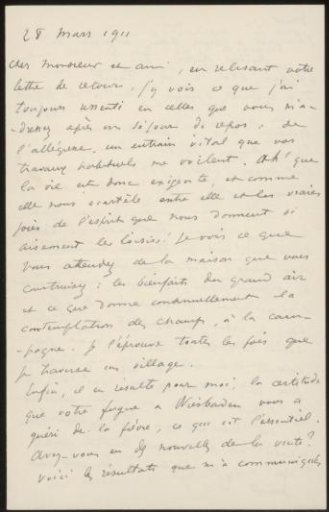 28 Mars 1911
Cher Monsieur et ami, en relisant votre
lettre de retour, j'y vois ce que j'ai
toujours senti en celles que vous m'a-
dressez après un séjour de repos, de
l'allégresse, un entrain vital que vos
travaux habituels me voilent. Ah! que
la vie est donc exigeante, et comme
elle nous écartèle entre elle et les vraies
joies de l'esprit que nous donnent si
aisément les loisirs! Je vois ce que
vous attendez de la maison que vous
construisez: les bienfaits du grand air
et ce que donne continuellement la
contemplation des champs, à la cam-
pagne. Je l'éprouve toutes les fois que
je traverse un village.
Enfin, il en résulte pour moi, la certitude
que votre fugue à Wiesbaden vous a
guéri de la fièvre, ce qui est l'essentiel.
Avez-vous eu des nouvelles de la vente?
Voici les résultats que m'a communiqués